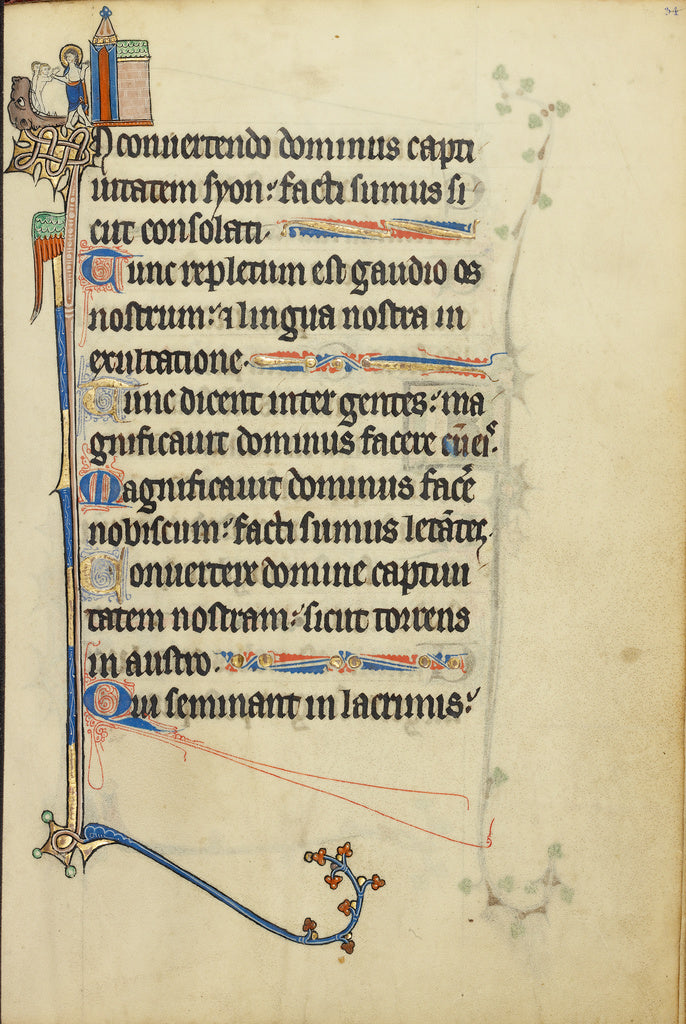 34
In conuertendo dominus capti
uitatem syon: facti sumus si
cut consolati.
Tunc repletum est gaudio os
nostrum: ⁊ lingua nostra in
exultatione.
Tunc dicent inter gentes: ma
gnificauit dominus facere cū eiˢ.
Magnificauit dominus facẽ
nobiscum: facti sumus letãtes.
Conuertere domine captiui
tatem nostram: sicut torrens
in austro.
Qui seminant in lacrimis: